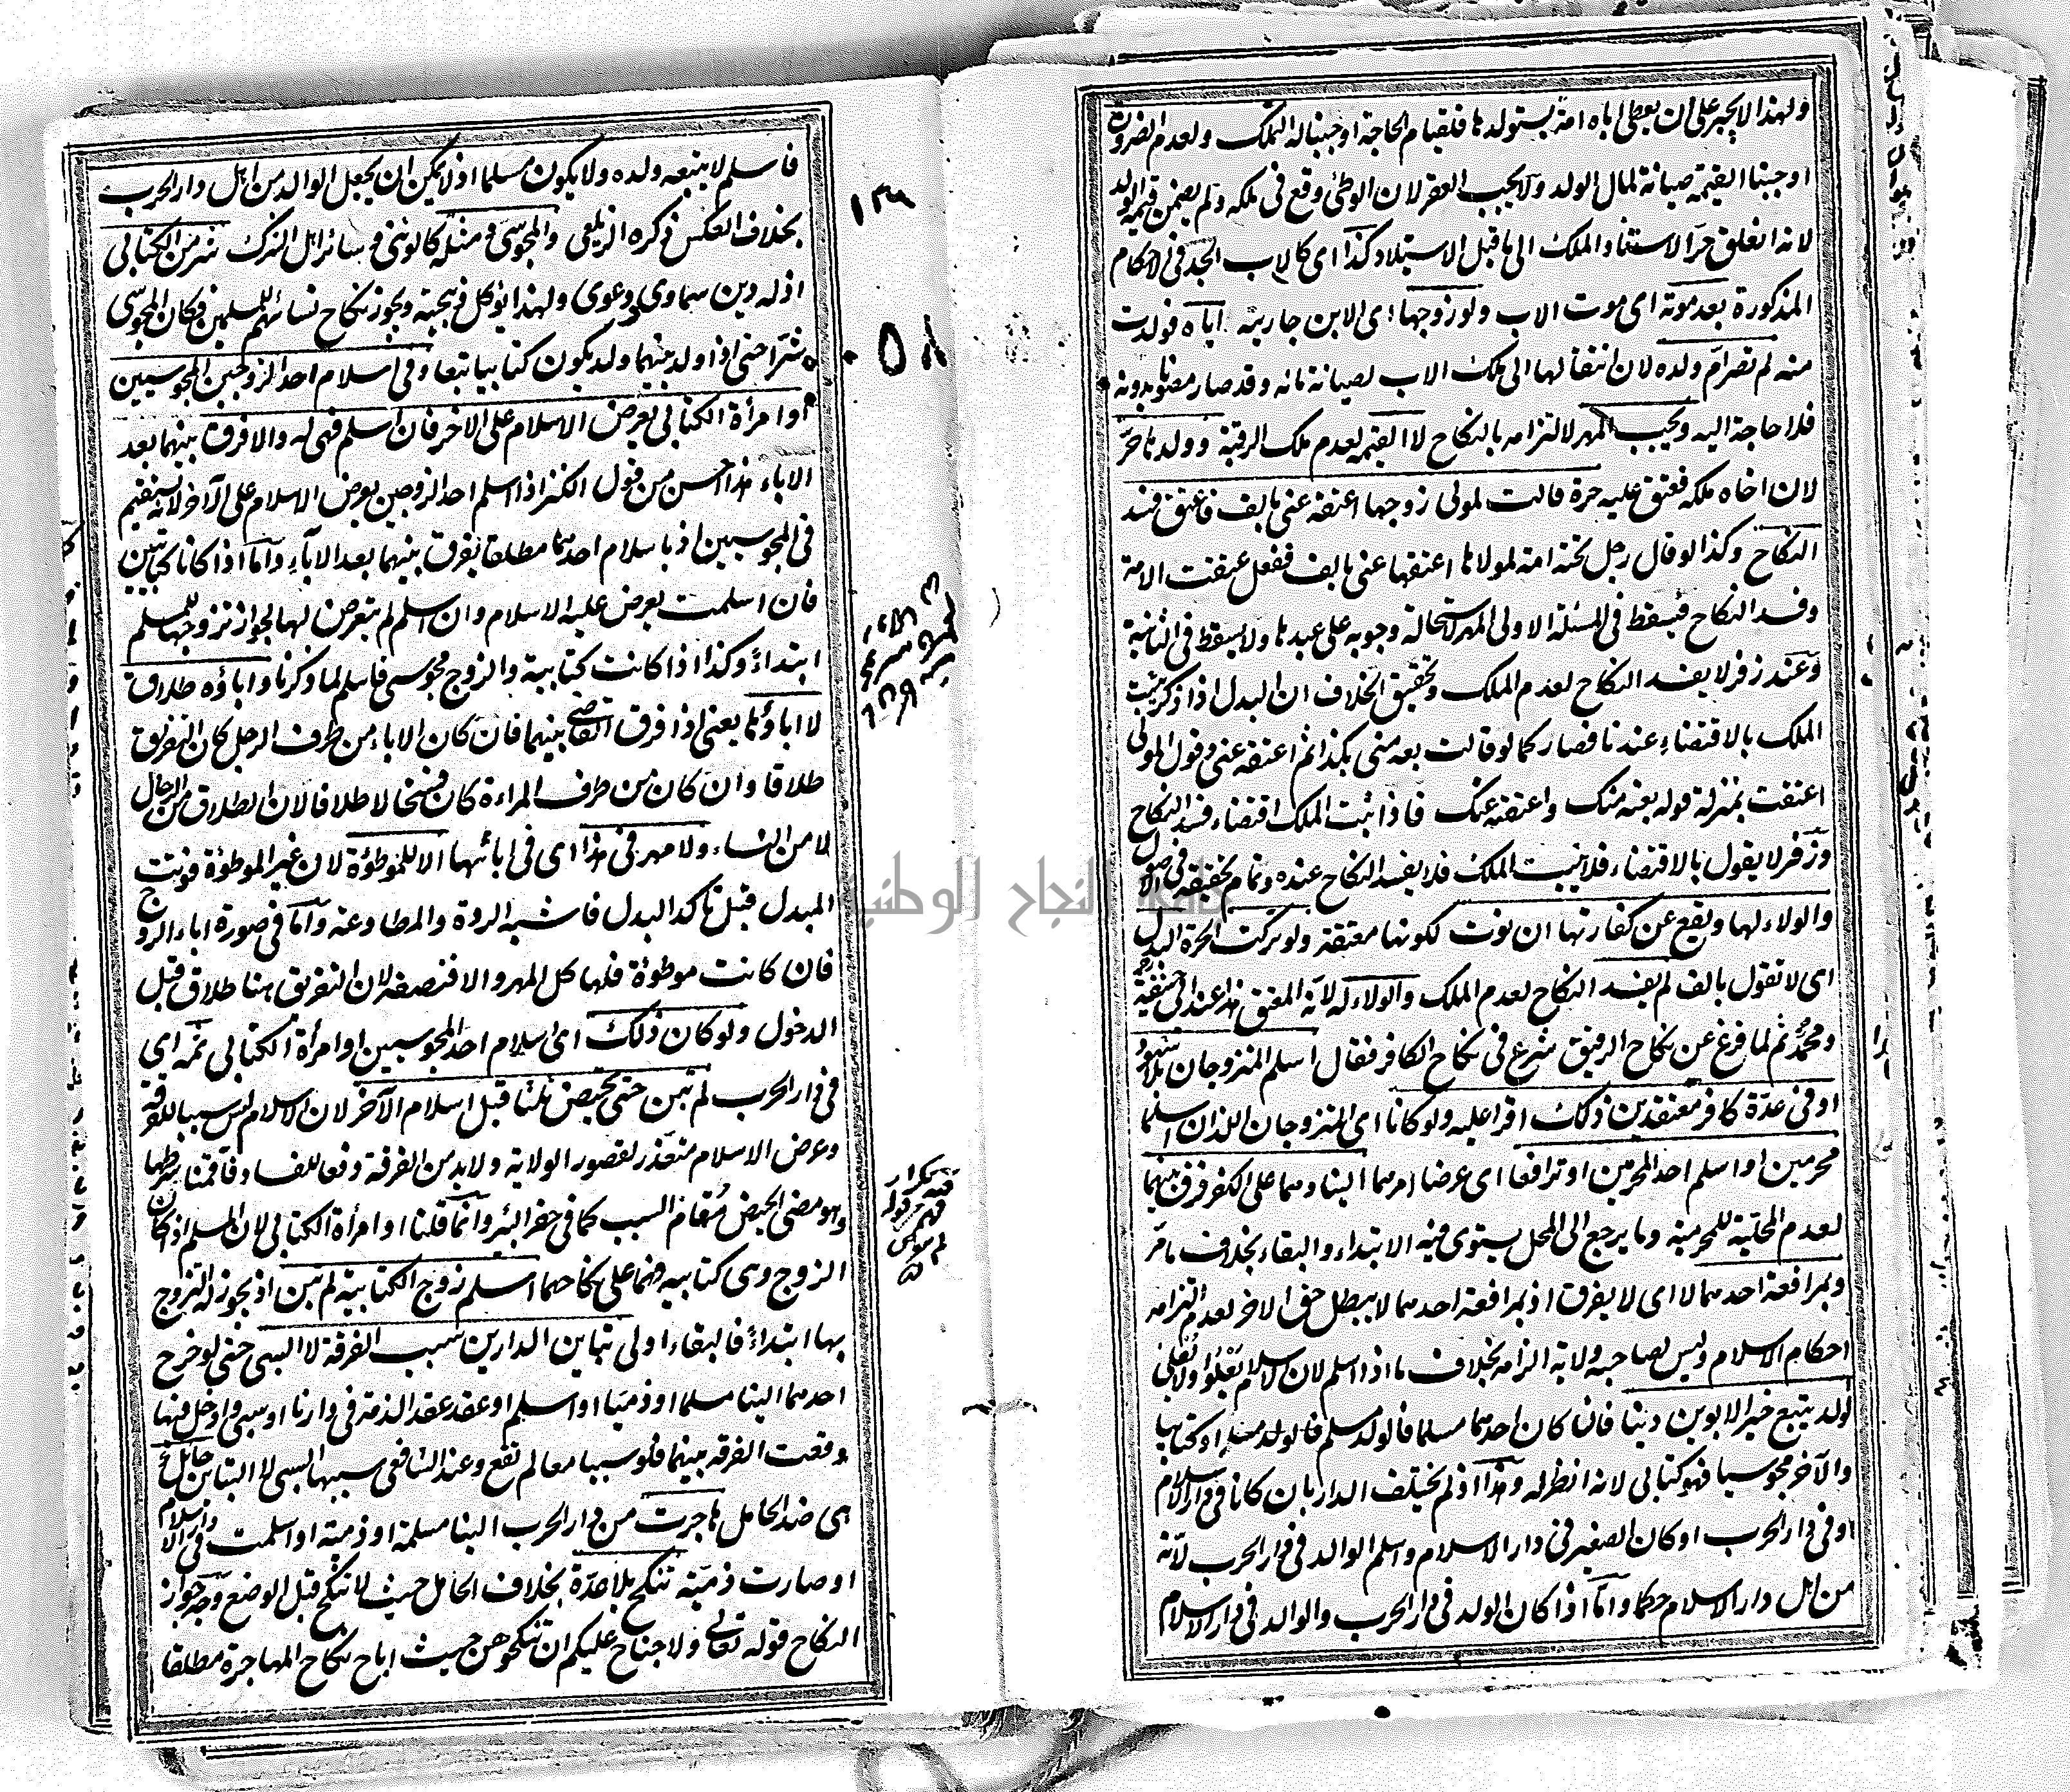 ولهذا لا يجبر على ان يعطى اباه امة يستولدها فلقيام الحاجة اوجبنا له التملك ولعدم الضرورة
اوجبنا القيمة صيانة لمال الولد ولا يجب العقر لان الوطئ وقع فى ملكه ولم يضمن قيمة الولد
لانه انعلق حرا لاستناد الملك الى ما قبل الاستيلاد كذا اى كالاب الجد فى الاحكام
المذكورة بعد موته اى موت الاب ولو زوجها اى الابن جاريته اباه فولدت
منه لم تصر ام ولده لان انتقالها الى ملك الاب لصيانة مائه وقد صار مصونا بدونه
فلا حاجة اليه ويجب المهر لالتزامه بالنكاح لا القيمة لعدم ملك الرقبة وولدها حر
لان اخاه ملكه فعتق عليه حرة قالت لمولى زوجها اعتقه عنى بالف فاعتق فسد
النكاح وكذا لو قال رجل تحته امة لمولاها اعتقها عنى بالف ففعل عتقت الامة
وفسد النكاح فيسقط فى المسئلة الاولى المهر لاستحالة وجوبه على عبدها ولا يسقط فى الثانية
وعند زفر لا يفسد النكاح لعدم الملك وتحقيق الخلاف ان البدل اذا ذكر يثبت
الملك بالاقتضاء عندنا فصار كما لو قالت بعه منى بكذا ثم اعتقه عنى وقول المولى
اعتقت بمنزلة قوله بعته منك واعتقته عنك فاذا ثبت الملك اقتضاء فسد النكاح
وزفر لا يقول بالاقتضاء فلا يثبت الملك فلا يفسد النكاح عنده وتمام تحقيقه فى الاصول
والولاء لها ويقع عن كفارتها ان نوت لكونها معتقة ولو تركت الحرة البدل
اى لا تقول بالف لم يفسد النكاح لعدم الملك والولاء له لانه المعتق هذا عند ابى حنيفة
ومحمد ثم لما فرغ عن نكاح الرقيق شرع فى نكاح الكافر فقال اسلم المتزوجان بلا شهود
او فى عدة كافر معتقدين ذلك اقرا عليه ولو كانا اى المتزوجان اللذان اسلما
محرمين او اسلم احد المحرمين او ترافعا اى عرضا امرهما الينا وهما على الكفر فرق بينهما
لعدم المحلية للمحرمية وما يرجع الى المحل يستوى فيه الابتداء والبقاء بخلاف ما مر
وبمرافعة احدهما لا اى لا يفرق اذ بمرافعة احدهما لا يبطل حق الاخر لعدم التزامه
احكام الاسلام وليس لصاحبه ولاية الزامه بخلاف ما اذا اسلم لان الاسلام يعلو ولا يعلى
لولد يتبع خير الابوين دينا فان كان احدهما مسلما فالولد مسلم او كتابيا
والآخر مجوسيا فهو كتابى لانه انظر له وهذا اذ لم يختلف الدار بان كانا فى دار الاسلام
او فى دار الحرب او كان الصغير فى دار الاسلام واسلم الوالد فى دار الحرب لانه
من اهل دار الاسلام حكما واما اذا كان الولد فى دار الحرب والوالد فى دار الاسلام
فاسلم لا يتبعه ولده ولا يكون مسلما اذ لا يمكن ان يجعل الوالد من اهل دار الحرب
بخلاف العكس ذكره الزيلعى والمجوسى ومثله كالوثنى وسائر اهل الشرك شر من الكتابى
اذ له دين سماوى دعوى ولهذا يؤكل ذبيحته ويجوز نكاح نسائهم للمسلمين فكان المجوسى
شرا حتى اذا ولد بينهما ولد يكون كتابيا تبعا وفى اسلام احد الزوجين المجوسيين
او امرأة الكتابى يعرض الاسلام على الاخر فان اسلم فهى له والا فرق بينهما بعد
الاباء هذا احسن من قول الكنز اذا اسلم احد الزوجين يعرض الاسلام على الآخر لانه يستقيم
فى المجوسيين اذ باسلام احدهما مطلقا يفرق بينهما بعد الاباء واما اذا كانا كتابيين
فان اسلمت يعرض عليه الاسلام وان اسلم لم يتعرض لها لجواز تزوجها للمسلم
ابتداء وكذا اذا كانت كتابية والزوج مجوسى فاسلم لما ذكرنا واباؤه طلاق
لا اباؤها يعنى اذا فرق القاضى بينهما فان كان الاباء من طرف الرجل كان التفريق
طلاقا وان كان من طرف المراءة كان فسخا لا طلاقا لان الطلاق من الرجال
لا من النساء ولا مهر فى هذا اى فى ابائها الا للموطوءة لان غير الموطوءة فوتت
المبدل قبل تأكد البدل فاشبه الردة والمطاوعة واما فى صورة اباء الزوج
فان كانت موطوءة فلها كل المهر والا فنصفه لان التفريق هنا طلاق قبل
الدخول ولو كان ذلك اى اسلام احد المجوسيين او امرأة الكتابى ثمه اى
فى دار الحرب لم تبن حتى تحيض ثلثا قبل اسلام الآخر لان الاسلام ليس سببا للفرقة
وعرض الاسلام متعذر لقصور الولاية ولابد من الفرقة دفعا للفساد فاقمنا شرطها
وهو مضى الحيض مقام السبب كما فى حفر البئر وانما قلنا او امرأة الكتابى لان المسلم اذا كان
الزوج وهى كتابية فهما على نكاحهما اسلم زوج الكتابية لم تبن اذ يجوز له التزوج
بها ابتداء فالبقاء اولى تباين الدارين سبب الفرقة لا السبى حتى لو خرج
احدهما الينا مسلما او ذميا او اسلم او عقد عقد الذمة فى دارنا او سبى وادخل فيها
وقعت الفرقة بينهما فلو سبيا معا لم تقع وعند الشافعى سببها السبى لا التباين حائل
هى ضد الحامل هاجرت من دار الحرب الينا مسلمة او ذمية او اسلمت فى دار الاسلام
او صارت ذمية تنكح بلا عدة بخلاف الحامل حيث لا تنكح قبل الوضع وجه جواز
النكاح قوله تعالى ولا جناح عليكم ان تنكحوهن حيث اباح نكاح المهاجرة مطلقا
١٣٩
٥٨
جامعة النجاح الوطنية